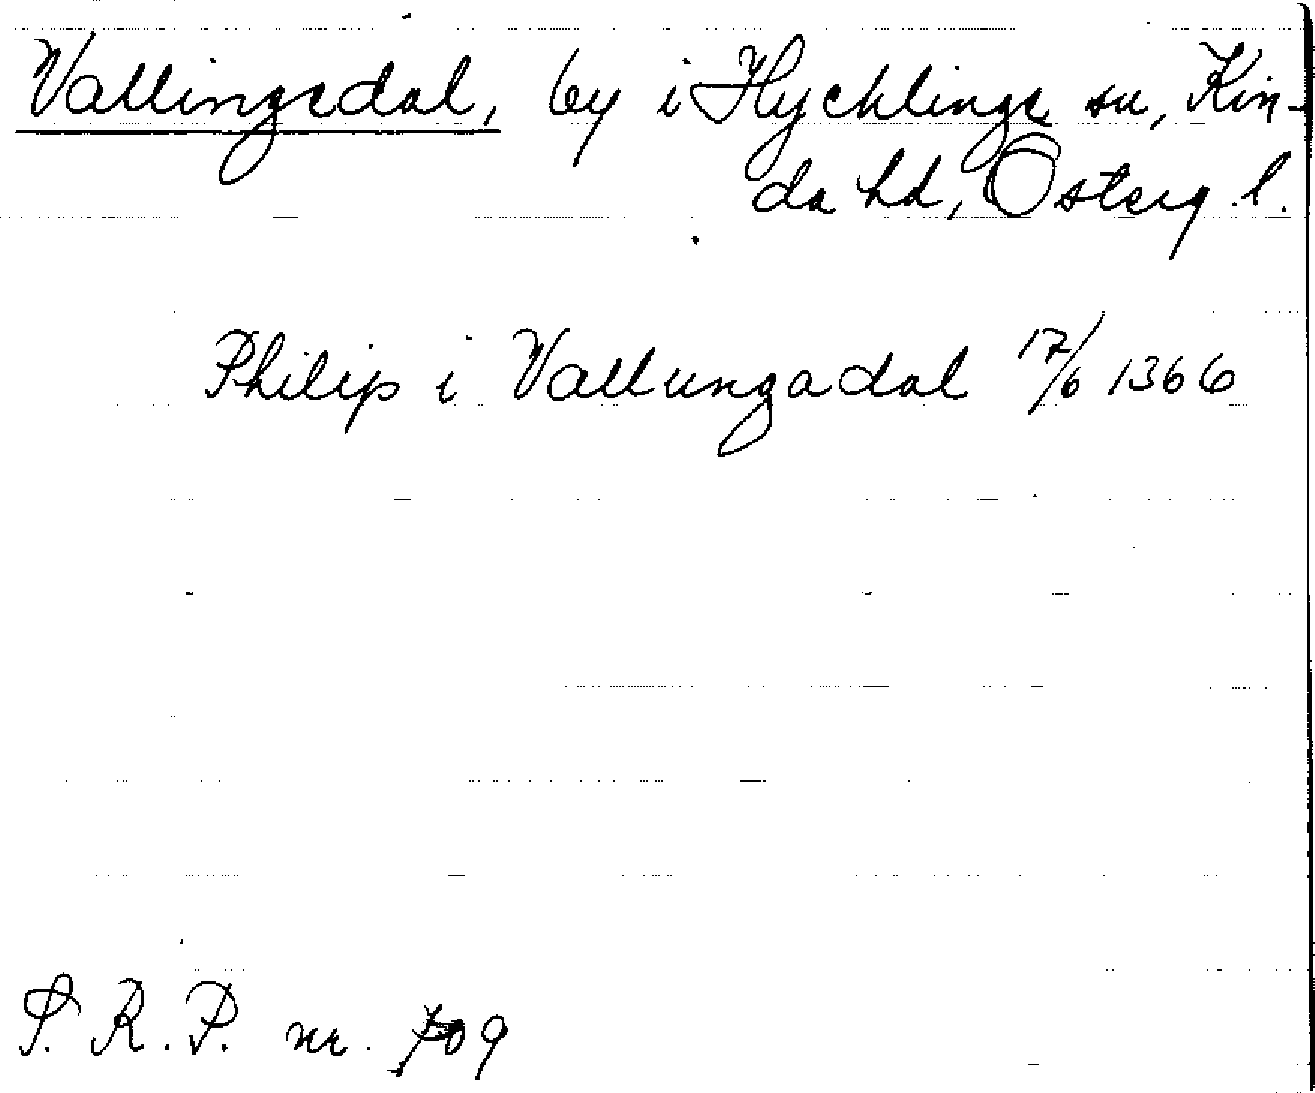 Vallingsdal, by i Hycklinge sn, Kin-
da hd, Österg. l.
Philip i Vallungadal 17/6 1366
S. R. P. nr. 709